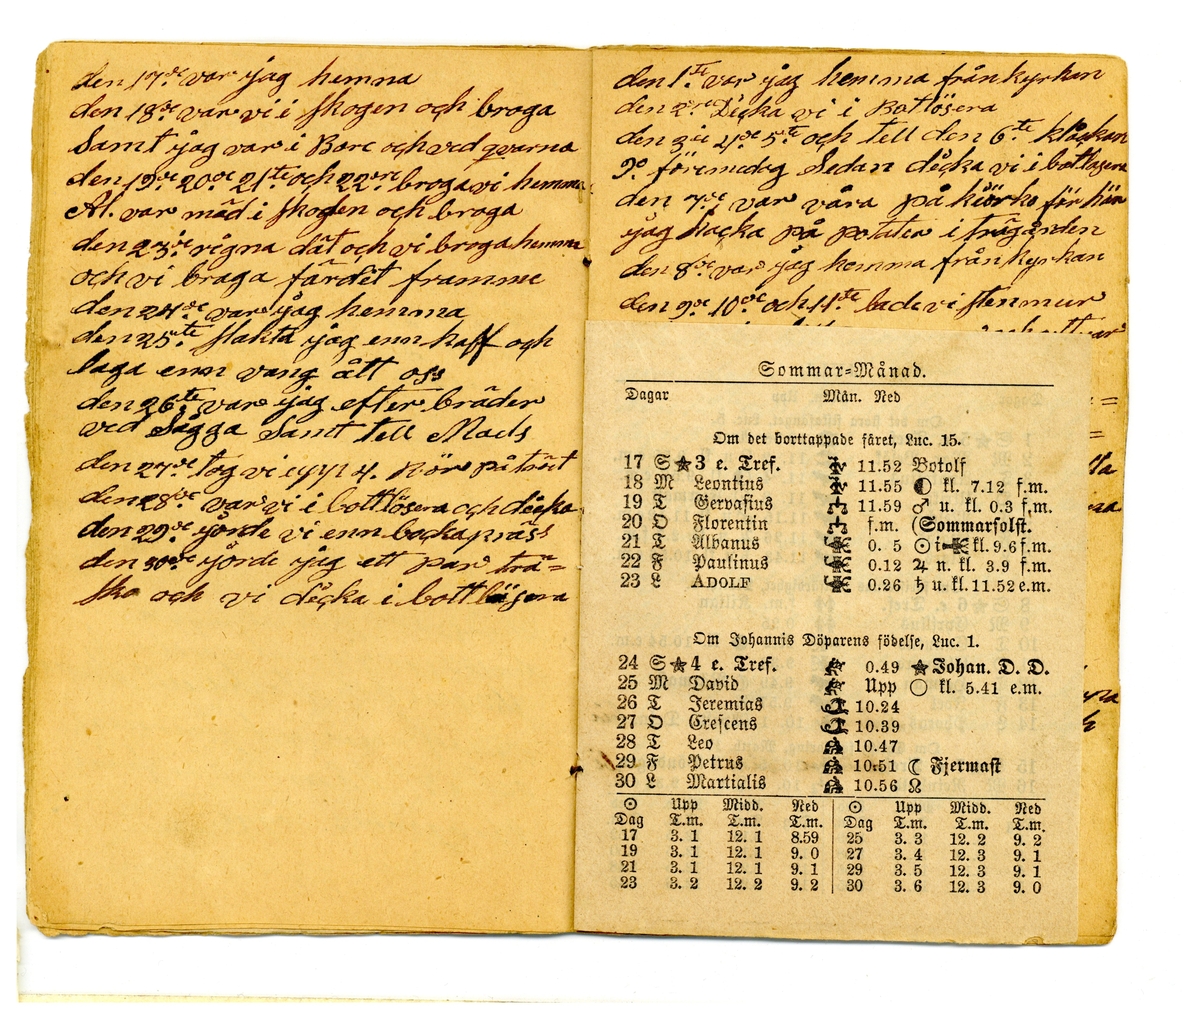 den 17de var jag hemma
den 18de var vi i skogen och broga
Samt jag var i Bare och ved qvarna
den 19de 20de 21te och 22dre broga vi hemma
Al. var mäd i skogen och broga
den 23die rigna dät och vi broga hemma
och vi braga färdet framme
den 24de var jag hemma
den 25te slakta jag enn kalf och
laga enn vang ått oss
den 26te var jag efter bräder
ved Sågga Samt tell Mads
den 27de tog vi upp 4. Rör på träet
den 28de var vi i bottlösera och däcka
den 29de jorde vi enn backapräss
den 30de jorde jag ett par trä=
sko och vi däcka i bottlösera
den 1ste var jag hemma från kyrkan
den 2dre Däcka vi i Botlösera
den 3die 4de 5te och tell den 6te klåckan
9. föremedag Sedan däcka vi i botlösera
den 7de var våra på kiörke för hän
jag hacka på potater i trägården
den 8de var jag hemma från kyrkan
den 9de 10de och 11te lade vi stenmur
Sommar=Månad.
Dagar Mån. Ned
Om det borttappade fåret, Luc. 15.
17 S ★ 3 e. Tref. 11.52 Botolf
18 M Leontius 11.55 ◐ kl. 7.12 f.m.
19 T Gervasius 11.59 ♂ u. kl. 0.3 f.m.
20 O Florentin f.m. (Sommarsolst.
21 T Albanus 0. 5 ☉ i kl. 9.6 f.m.
22 F Paulinus 0.12 ♃ n. kl. 3.9 f.m.
23 L ADOLF 0.26 ♄ u. kl. 11.52 e.m.
Om Johannis Döparens födelse, Luc. 1.
24 S ★ 4 e. Tref. 0.49 ★ Johan. D. D.
25 M David Upp ○ kl. 5.41 e.m.
26 T Jeremias 10.24
27 O Crescens 10.39
28 T Leo 10.47
29 F Petrus 10.51 ☾ Fjermast
30 L Martialis 10.56 ☊
☉ Upp Midd. Ned ☉ Upp Midd. Ned
Dag T.m. T.m. T.m. Dag T.m. T.m. T.m.
17 3. 1 12. 1 8.59 25 3. 3 12. 2 9. 2
19 3. 1 12. 1 9. 0 27 3. 4 12. 3 9. 1
21 3. 1 12. 1 9. 1 29 3. 5 12. 3 9. 1
23 3. 2 12. 2 9. 2 30 3. 6 12. 3 9. 0